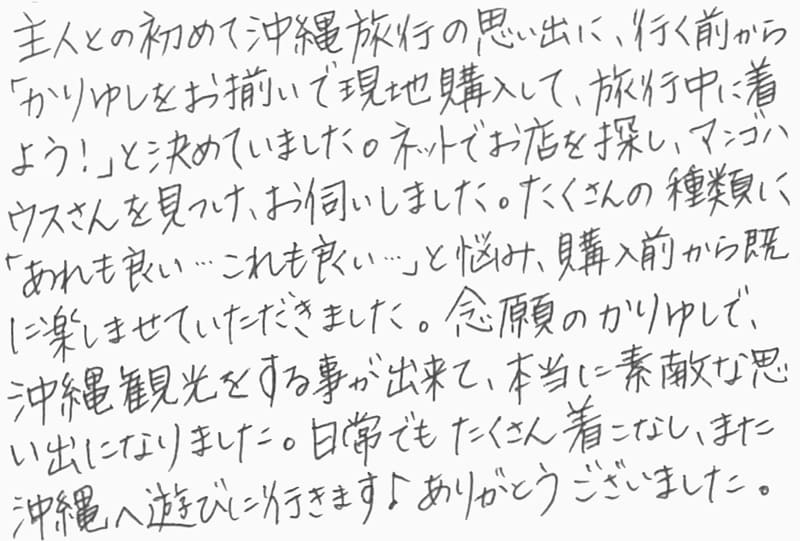 主人との初めて沖縄旅行の思い出に、行く前から
「かりゆしをお揃いで現地購入して、旅行中に着
よう!」と決めていました。ネットでお店を探し、マンゴハ
ウスさんを見つけ、お伺いしました。たくさんの種類に
「あれも良い…これも良い…」と悩み、購入前から既
に楽しませていただきました。念願のかりゆしで、
沖縄観光をする事が出来て、本当に素敵な思
い出になりました。日常でもたくさん着こなし、また
沖縄へ遊びに行きます♪ありがとうございました。